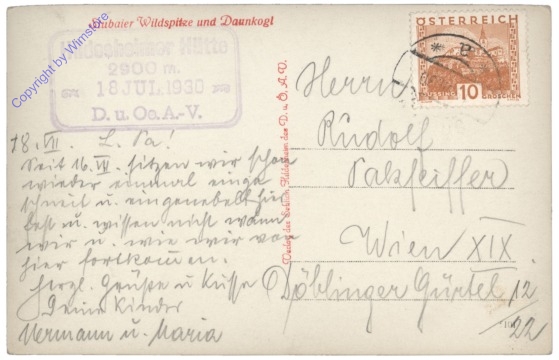 Stubaier Wildspitze und Daunkogl
Copyright by Wimstore
Hildesheimer Hütte
2900 m.
18 JUL. 1930
D. u. Oe. A.-V.
ÖSTERREICH
10
GROSCHEN
18. VII. L. Pa!
Seit 16. VII. sitzen wir schon
wieder einmal einge
schneit u. eingenebelt hier
fest u. wissen nicht wann
wir u. wie wir von
hier fortkommen.
Herzl. Grüße u Küsse
Deine Kinder
Hermann u. Maria
Verlag der Sektion Hildesheim des D. u. Ö. A. V.
Herrn
Rudolf
Wien XIX
Döblinger Gürtel 12/22